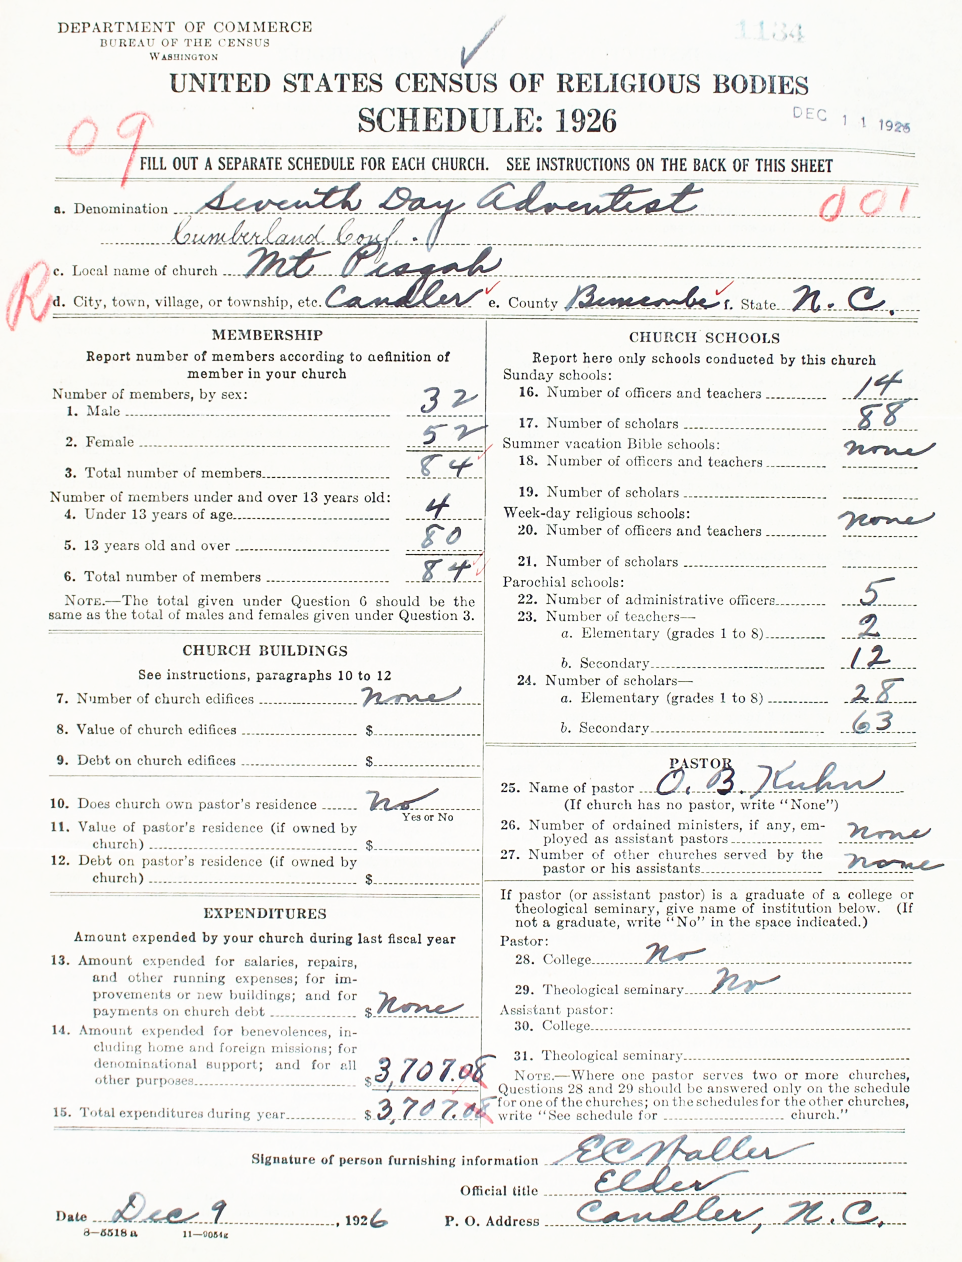 DEPARTMENT OF COMMERCE
BUREAU OF THE CENSUS
WASHINGTON
1134
UNITED STATES CENSUS OF RELIGIOUS BODIES
SCHEDULE: 1926
DEC 11 1926
09
FILL OUT A SEPARATE SCHEDULE FOR EACH CHURCH. SEE INSTRUCTIONS ON THE BACK OF THIS SHEET
a. Denomination Seventh Day Adventist
001
Cumberland Conf.
c. Local name of church Mt Pisgah
R
d. City, town, village, or township, etc. Candler e. County Buncombe f. State N. C.
MEMBERSHIP
Report number of members according to definition of
member in your church
Number of members, by sex:
1. Male 32
2. Female 52
3. Total number of members 84
Number of members under and over 13 years old:
4. Under 13 years of age 4
5. 13 years old and over 80
6. Total number of members 84
NOTE.—The total given under Question 6 should be the
same as the total of males and females given under Question 3.
CHURCH BUILDINGS
See instructions, paragraphs 10 to 12
7. Number of church edifices none
8. Value of church edifices $
9. Debt on church edifices $
10. Does church own pastor's residence No
Yes or No
11. Value of pastor's residence (if owned by
church) $
12. Debt on pastor's residence (if owned by
church) $
EXPENDITURES
Amount expended by your church during last fiscal year
13. Amount expended for salaries, repairs,
and other running expenses; for im-
provements or new buildings; and for
payments on church debt $ None
14. Amount expended for benevolences, in-
cluding home and foreign missions; for
denominational support; and for all
other purposes $ 3,707.08
15. Total expenditures during year $ 3,707.08
CHURCH SCHOOLS
Report here only schools conducted by this church
Sunday schools:
16. Number of officers and teachers 14
17. Number of scholars 88
Summer vacation Bible schools:
18. Number of officers and teachers none
19. Number of scholars
Week-day religious schools:
20. Number of officers and teachers none
21. Number of scholars
Parochial schools:
22. Number of administrative officers 5
23. Number of teachers—
a. Elementary (grades 1 to 8) 2
b. Secondary 12
24. Number of scholars—
a. Elementary (grades 1 to 8) 28
b. Secondary 63
PASTOR
25. Name of pastor O. B. Kuhn
(If church has no pastor, write "None")
26. Number of ordained ministers, if any, em-
ployed as assistant pastors none
27. Number of other churches served by the
pastor or his assistants none
If pastor (or assistant pastor) is a graduate of a college or
theological seminary, give name of institution below. (If
not a graduate, write "No" in the space indicated.)
Pastor:
28. College No
29. Theological seminary No
Assistant pastor:
30. College
31. Theological seminary
NOTE.—Where one pastor serves two or more churches,
Questions 28 and 29 should be answered only on the schedule
for one of the churches; on the schedules for the other churches,
write "See schedule for church."
Signature of person furnishing information EC Waller
Official title Elder
Date Dec 9, 1926 P. O. Address Candler, N.C.
8—5518 a 11—9054g